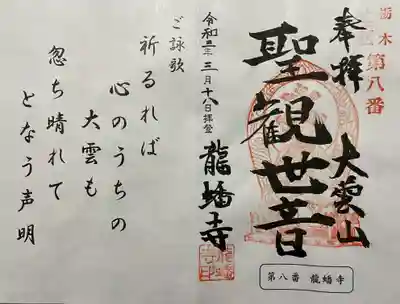 栃木
第八番
奉拝
大雲山
聖観世音
龍蟠寺
令和三年三月十八日拝登
第八番 龍蟠寺
ご詠歌
祈るれば
心のうちの
大雲も
忽ち晴れて
となう声明